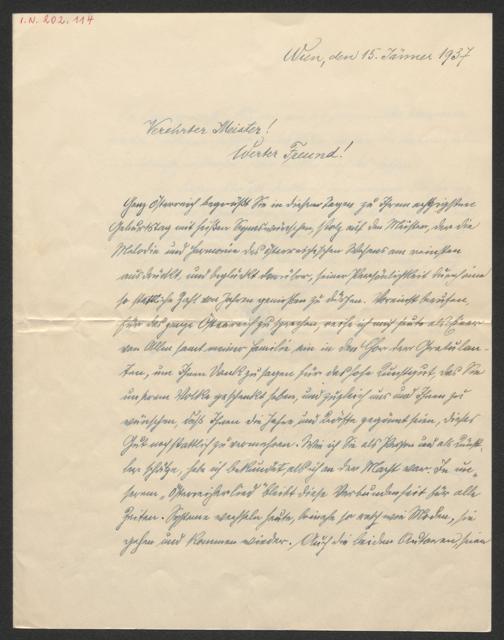 I.N. 202.114
Wien, den 15. Jänner 1937
Verehrter Meister!
Werter Freund!
Ganz Österreich begrüßt Sie in diesen Tagen zu Ihrem achtzigsten
Geburtstag mit heißen Segenswünschen, stolz auf den Meister, der die
Melodie und Harmonie des österreichischen Wesens am reinsten
ausdrückt, und beglückt darüber, seiner Persönlichkeit durch eine
so stattliche Zahl von Jahren genießen zu dürfen. Vereint berufen,
für das ganze Österreich zu sprechen, reihe ich mich heute als Euer
von Allem samt meiner Familie ein in den Chor der Gratulan-
ten, um Ihnen Dank zu sagen für das hohe Kunstgut, das Sie
unserem Volke geschenkt haben, und zugleich uns und Ihnen zu
wünschen, daß Ihnen die Jahre und Kräfte gegönnt seien, dieses
Gut noch stattlich zu vermehren. Wie ich Sie als Person und als Künst-
ler schätze, habe ich bekundet, als ich an der Macht war. In un-
serem „Österreicherlied" bleibt diese Verbundenheit für alle
Zeiten. Systeme wechseln heute, beinahe so rasch wie Moden, sie
gehen und kommen wieder. Auch die beiden Autoren, seien